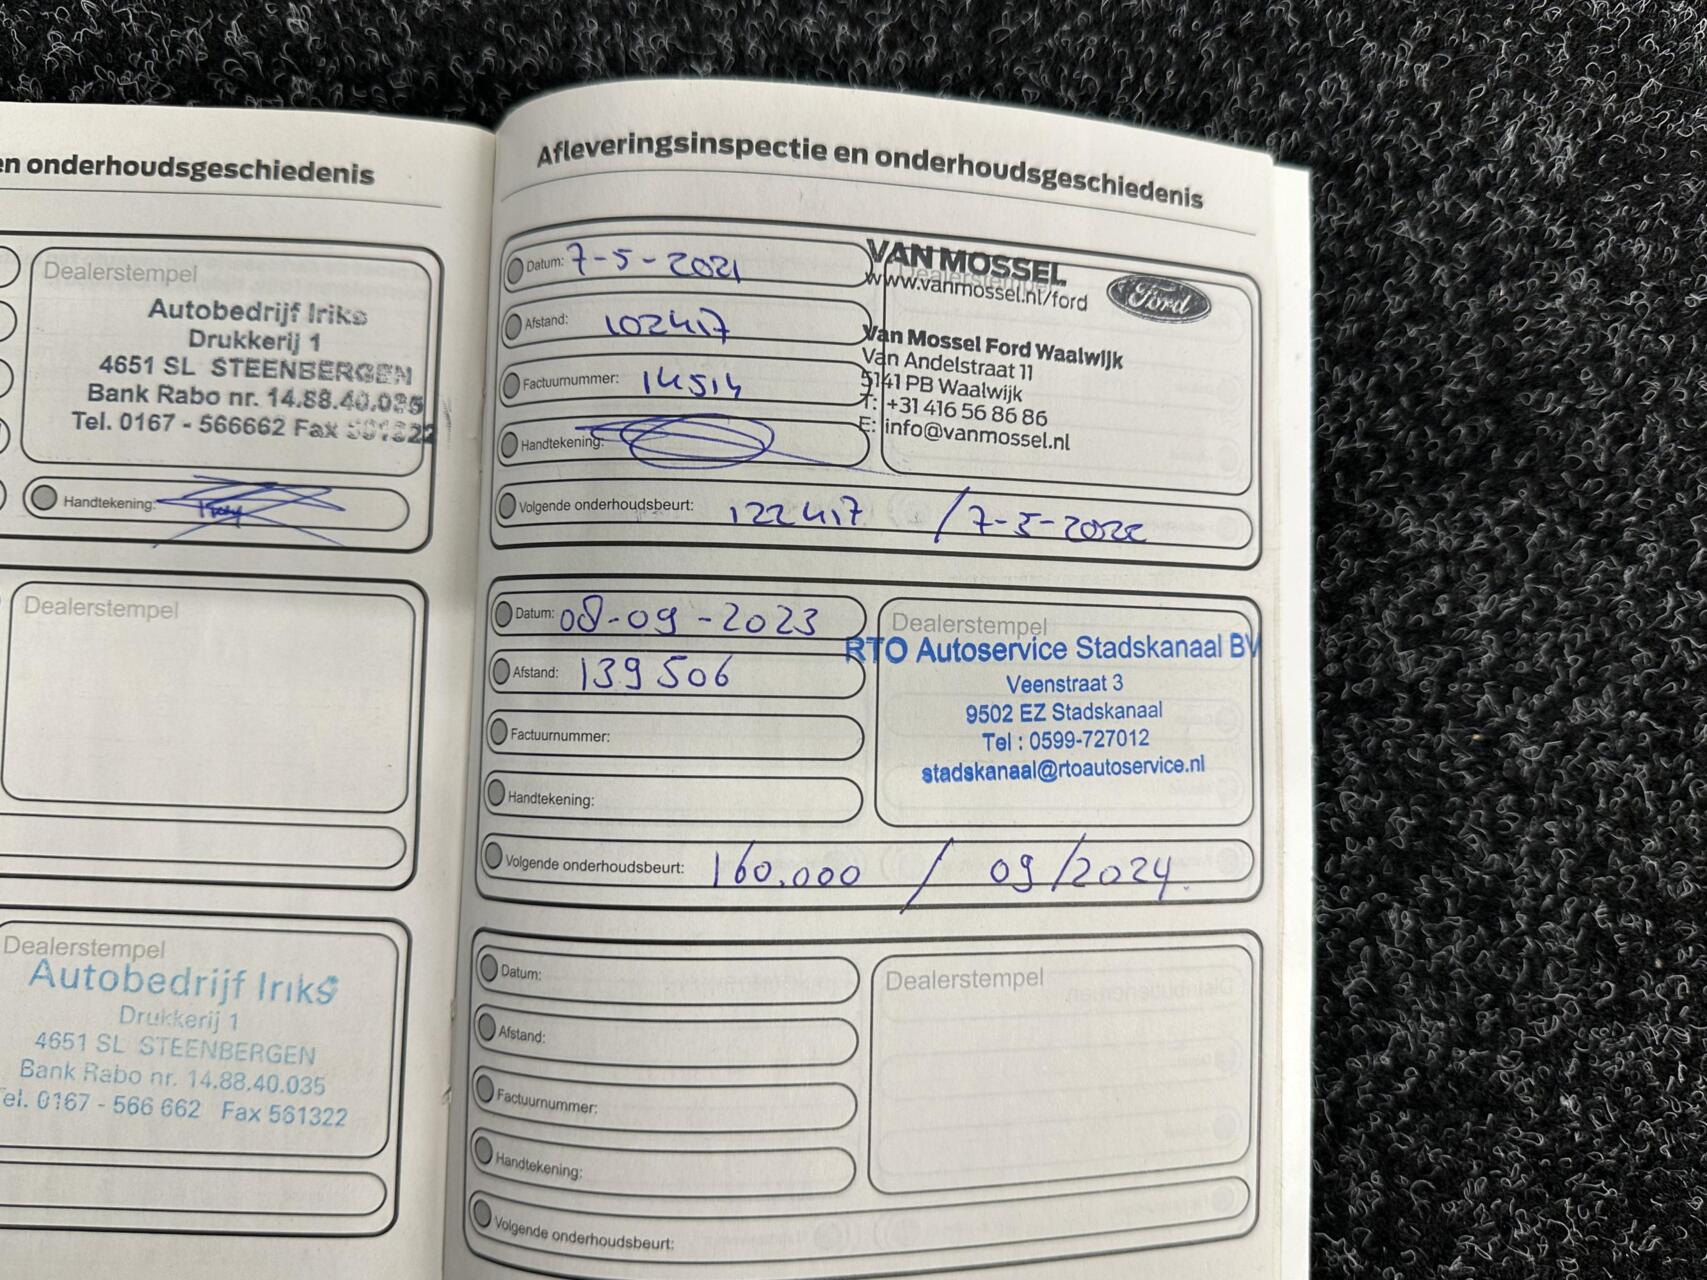 en onderhoudsgeschiedenis
Dealerstempel
Autobedrijf Iriks
Drukkerij 1
4651 SL STEENBERGEN
Bank Rabo nr. 14.88.40.035
Tel. 0167 - 566662 Fax 561322
Handtekening:
Dealerstempel
Dealerstempel
Autobedrijf Iriks
Drukkerij 1
4651 SL STEENBERGEN
Bank Rabo nr. 14.88.40.035
Tel. 0167 - 566 662 Fax 561322
Afleveringsinspectie en onderhoudsgeschiedenis
Datum: 7-5-2021
Afstand: 102417
Factuurnummer: 14514
Handtekening:
Dealerstempel
VAN MOSSEL
www.vanmossel.nl/ford
Ford
Van Mossel Ford Waalwijk
Van Andelstraat 11
5141 PB Waalwijk
T: +31 416 56 86 86
E: info@vanmossel.nl
Volgende onderhoudsbeurt: 122417 / 7-5-2022
Datum: 08-09-2023
Afstand: 139506
Factuurnummer:
Handtekening:
Dealerstempel
RTO Autoservice Stadskanaal BV
Veenstraat 3
9502 EZ Stadskanaal
Tel : 0599-727012
stadskanaal@rtoautoservice.nl
Volgende onderhoudsbeurt: 160.000 / 09/2024.
Datum:
Afstand:
Factuurnummer:
Handtekening:
Dealerstempel
Volgende onderhoudsbeurt: